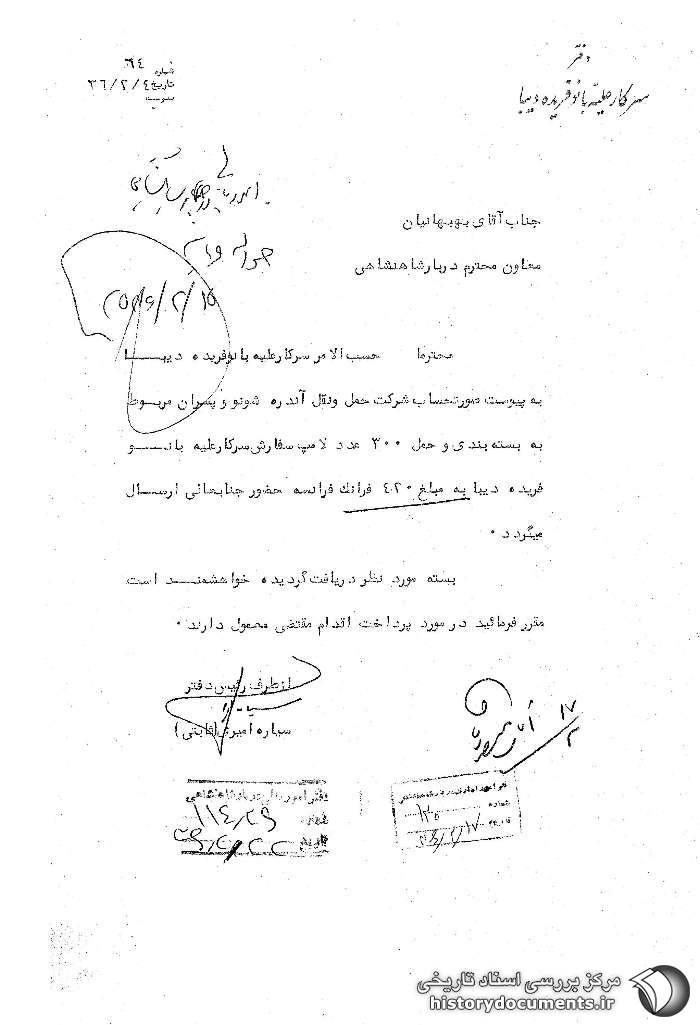 دفتر
سرکار علیه بانو فریده دیبا
شماره ٦٤
تاریخ ٣٦/٢/٤
پیوست
جناب آقای بهبهانیان
معاون محترم دربار شاهنشاهی
حواله
محترما حسب الامر سرکار علیه بانو فریده دیبا
به پیوست صورتحساب شرکت حمل ونقل آندره شونو و پسران مربوط
به بسته بندی و حمل ٣٠٠ عدد لامپ سفارش سرکار علیه بانو
فریده دیبا به مبلغ ٤٢٠ فرانك فرانسه حضور جنابعالی ارسال
میگردد ٠
بسته مورد نظر دریافت گردیده خواهشمند است
مقرر فرمائید در مورد پرداخت اقدام مقتضی معمول دارند ٠
از طرف رئیس دفتر
دفتر امور مالی دربار شاهنشاهی
شماره ١١٤٢٩
تاریخ
شماره
١٧/٢
مرکز بررسی اسناد تاریخی
historydocuments.ir